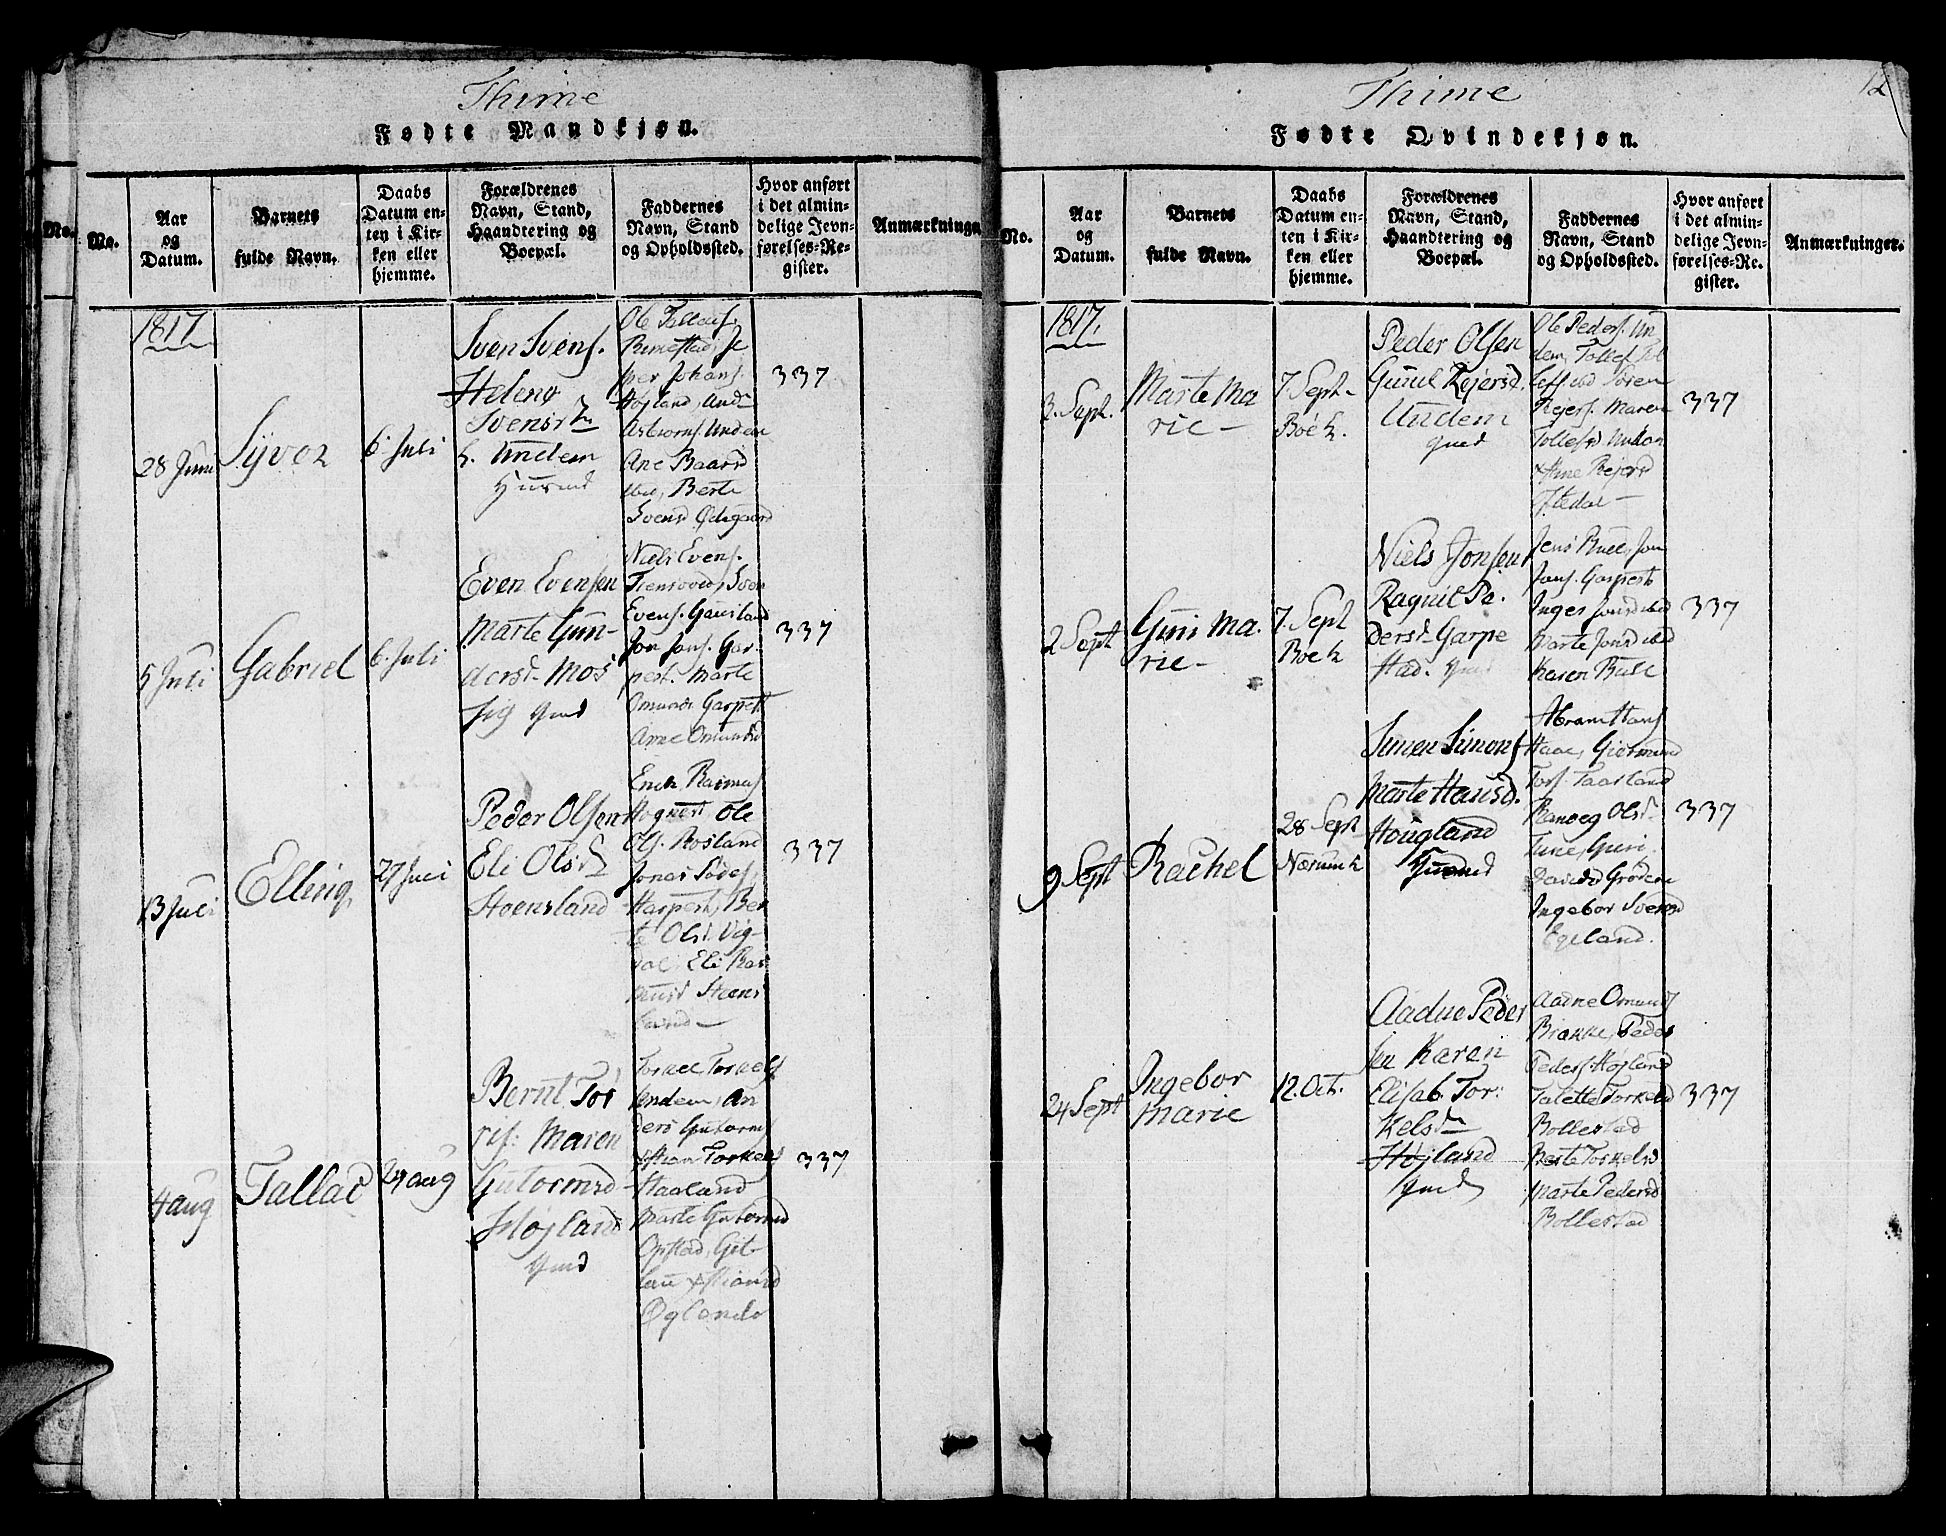 Thime
Fødte Mandkjøn.
No.
No.
Aar
og
Datum.
Barnets
fulde Navn.
Daabs
Datum en-
ten i Kir-
ken eller
hjemme.
Forældrenes
Navn, Stand,
Haandtering og
Boepæl.
Faddernes
Navn, Stand
og Opholdssted.
Hvor anført
i det almin-
delige Jevn-
førelses-Re-
gister.
Anmærkninger
1817.
28 Juni
Syver
6 Juli
Sven Svens.
Helene
Svensd.
h. Undem
Huusmd
Ole Tallaks.
Braastad,
Johans.
Højland, And.
Asbiørns. Undem
Ane Baards
ibd, Berte
Svensd Ødegaard
337
5 Juli
Gabriel
6. Juli
Even Evensen
Marte Gun-
dersd. Mos
sig Gmd
Niels Evens.
Sven
Evens. Gausland
Jon Jons. Gar-
pest. Marte
Omunds Garpest
Ane Omundsd
337
13 Juli
Elling
27 Juli
Peder Olsen
Eli Olsd
Hoensland
Erich Rasmus
Hognest Ole
Ols. Rosland
Jonas
Harpest, Ber
te Olsd. Vig-
dal, Eli Ras
musd Hoens
land
337
4 aug
Tallac
24 aug
Bernt Tor
res: Maren
Gutormsd
Højland
Gmd
Torkel Torkels
Undem, An
ders Gutorms
Torkels
Haaland
Marte Gutormsd
Opstad, Git-
lau Xstiansd
Øglende
337
Thime
12
Fødte Qvindekjøn.
No.
Aar
og
Datum.
Barnets
fulde Navn.
Daabs
Datum en-
ten i Kir-
ken eller
hjemme.
Forældrenes
Navn, Stand,
Haandtering og
Boepæl.
Faddernes
Navn, Stand
og Opholdssted.
Hvor anført
i det almin-
delige Jevn-
førelses-Re-
gister.
Anmærkninger.
1817.
3. Sept.
Marte Ma
rie
7 Sept.
Boe k.
Peder Olsen
Guul Rejersd.
Undem
Gmd
Ole Peders. Un
dem, Tollef Tol
lefs ibd Søren
Rejers. Maren
Tollefsd Undem
Ane Rejersd
Oftedal
337
2 Sept
Guri Ma.
rie
7. Sept
Boe k
Niels Jonsen
Ragnil Pe.
dersd. Garpe
stad. Gmd
Jens Bue, Jon
Jons. Garpest.
Inger Jonsd ibd
Marte Jonsd ibd
Karen Bue
337
9 Sept
Rachel
28 Sept
Nærum k
Simen Simons
Marte Hansd.
Hougland
Huusmd
Abram Hans
Haae, Giermund
Tors. Taarland
Ranveg Olsd.
Tune, Guri
Davidsd Grødem
Ingebor Svensd
Egeland.
337
24 Sept
Ingebor
Marie
12. Oct.
Aadne Peder
sen Karen
Elisab. Tor:
kelsd
Højland
Gmd
Aadne Omunds
Brække, Peder
Peders. Højland
Talette Torkelsd
Bollestad
Berte Torkelsd
Marte Pedersd
Bollestad
337